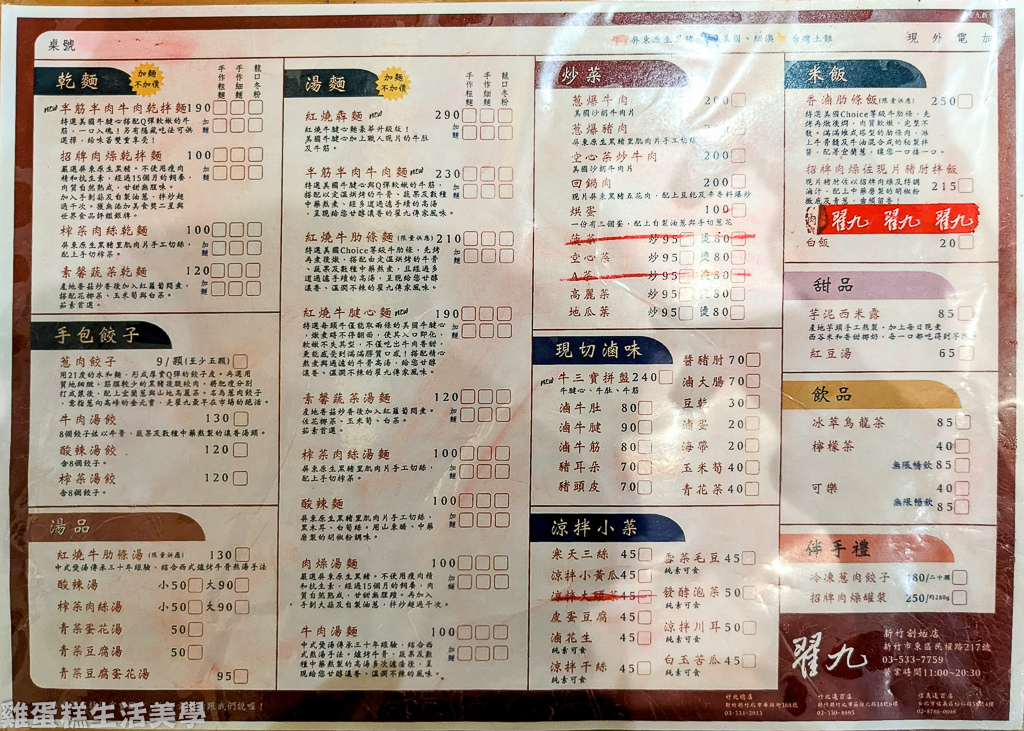 桌號
屏東原生黑豬
美國、紐澳
台灣土雞
現 外 電 加
乾麵
加麵不加價
手作粗麵
手作細麵
龍口冬粉
new 半筋半肉牛肉乾拌麵190
特選美國牛腱心搭配Q彈軟嫩的牛
筋，一口入魂！另有隱藏吃法可供
選擇，給味蕾雙重享受！
加麵
招牌肉燥乾拌麵 100
嚴選屏東原生黑豬。不使用瘦肉
精和抗生素，經過15個月的飼養，
肉質自然熟成，甘甜無腥味。
加入手剝蒜及自製油蔥，拌炒超
過千次。獲無添加美食獎二星與
世界食品評鑑銀牌。
加麵
榨菜肉絲乾麵 100
屏東原生黑豬里肌肉片手工切絲，
配上手切榨菜。
加麵
素馨蔬菜乾麵 120
產地番茄炒香後加入紅蘿蔔悶煮，
搭配花椰菜、玉米筍與白菜。
茹素首選。
加麵
手包餃子
蔥肉餃子 9/顆(至少五顆)
牛肉湯餃 130
8個餃子佐以牛骨、蔬果及數種中藥熬製的濃香湯頭。
酸辣湯餃 120
含8個餃子。
榨菜湯餃 120
含8個餃子。
湯品
紅燒牛肋條湯(限量供應) 130
中式煲湯傳承三十年經驗，結合西式爐烤牛骨熬湯手法
酸辣湯 小50 大90
榨菜肉絲湯 小50 大90
青菜蛋花湯 50
青菜豆腐湯 50
青菜豆腐蛋花湯 95
湯麵
加麵不加價
手作粗麵
手作細麵
龍口冬粉
紅燒犇麵 new 290
紅燒牛腱心麵豪華升級版！
美國牛腱心加上職人現片的牛肚
及牛筋。
加麵
半筋半肉牛肉麵 new 230
特選美國牛腱心與Q彈軟嫩的牛筋，
搭配以定溫烘烤的牛骨、蔬果及數種
中藥熬煮，經多道過濾手續的高湯，
呈現給您甘醇濃香的翟九傳家風味。
加麵
紅燒牛肋條麵(限量供應)210
特選美國Choice等級牛肋條，先烤
再煮後燉，搭配由定溫烘烤的牛
骨、蔬果及數種中藥熬煮，且經過多
道過濾手續的高湯，呈現給您甘醇
濃香、溫潤不辣的翟九傳家風味。
加麵
紅燒牛腱心麵 new 190
特選每頭牛僅能取兩條的美國牛腱心
，燉煮時不停翻面，使其入口即化，
軟嫩不失其型，不僅吃出牛肉香甜，
更能感受到滿滿膠質口感！搭配精心
熬煮與過濾的牛骨高湯，給您甘醇
濃香、溫潤不辣的翟九傳家風味。
加麵
素馨蔬菜湯麵 120
產地番茄炒香後加入紅蘿蔔悶煮，
佐花椰菜、玉米筍、白菜。
茹素首選。
加麵
榨菜肉絲湯麵 100
屏東原生黑豬里肌肉片手工切絲，
配上手切榨菜。
加麵
酸辣麵 100
屏東原生黑豬里肌肉片手工切絲，
黑木耳、白筍絲。用山東醋、中藥
磨製的胡椒粉調味。
加麵
肉燥湯麵 100
嚴選屏東原生黑豬。不使用瘦肉精
和抗生素，經過15個月的飼養，肉
質自然熟成，甘甜無腥羶。再加入
手剝大蒜及自製油蔥，拌炒超過千次。
加麵
牛肉湯麵 100
中式煲湯傳承三十年經驗，結合西
式熬湯手法。爐烤牛骨，蔬果及數
種中藥熬製的高湯多次濾油後，呈
現給您甘醇濃香、溫潤不辣的風味。
加麵
炒菜
蔥爆牛肉 200
美國沙朗牛肉片
蔥爆豬肉 200
屏東原生黑豬里肌肉片手工切絲
空心菜炒牛肉 200
美國沙朗牛肉片
回鍋肉 200
現片屏東黑豬五花肉，配上豆乾及辛香料爆炒
烘蛋 100
一份有三個蛋，配上自製油蔥與手切蔥花
菠菜 炒95 燙80
空心菜 炒95 燙80
A菜 炒95 燙80
高麗菜 炒95 燙80
地瓜菜 炒95 燙80
現切滷味
new 牛三寶拼盤240
牛腱心、牛肚、牛筋
滷牛肚 80
滷牛腱 90
滷牛筋 80
豬耳朵 70
豬頭皮 70
醬豬肘70
滷大腸70
豆乾 30
滷蛋 20
海帶 20
玉米筍40
青花菜40
涼拌小菜
寒天三絲 45
涼拌小黃瓜45
涼拌大頭菜45
皮蛋豆腐 45
滷花生 45
涼拌干絲 45
純素可食
雪菜毛豆 45
純素可食
發酵泡菜 50
純素可食
涼拌川耳 50
純素可食
白玉苦瓜 45
純素可食
米飯
香滷肋條飯(限量供應) 250
特選美國Choice等級牛肋條，先
烤再燉後燜，肉質軟嫩，完整不
散，滿滿堆成塔型的肋條肉，淋
上牛骨髓及牛油混合成的秘製拌
醬，配著宜蘭蔥，讓您一口接一口。
招牌肉燥佐現片豬肘拌飯 215
翟九 翟九 翟九
白飯 20
甜品
芋泥西米露 85
產地芋頭手工熬製，加上每日現煮
紅豆湯 65
飲品
冰萃烏龍茶 85
檸檬茶 40
無限暢飲85
可樂 40
無限暢飲85
伴手禮
冷凍蔥肉餃子 180/二十顆
招牌肉燥罐裝 250/約280g
翟九
新竹創始店
新竹市東區民權路217號
03-533-7759
營業時間11:00~20:30
竹北總店
03-551-2915
竹北遠百店
03-550-8995
信義遠百店
02-8786-0698
跟我們說喔！
雞蛋糕生活美學